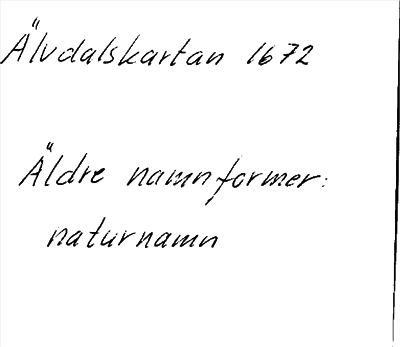 Älvdalskartan 1672
Äldre namnformer:
naturnamn